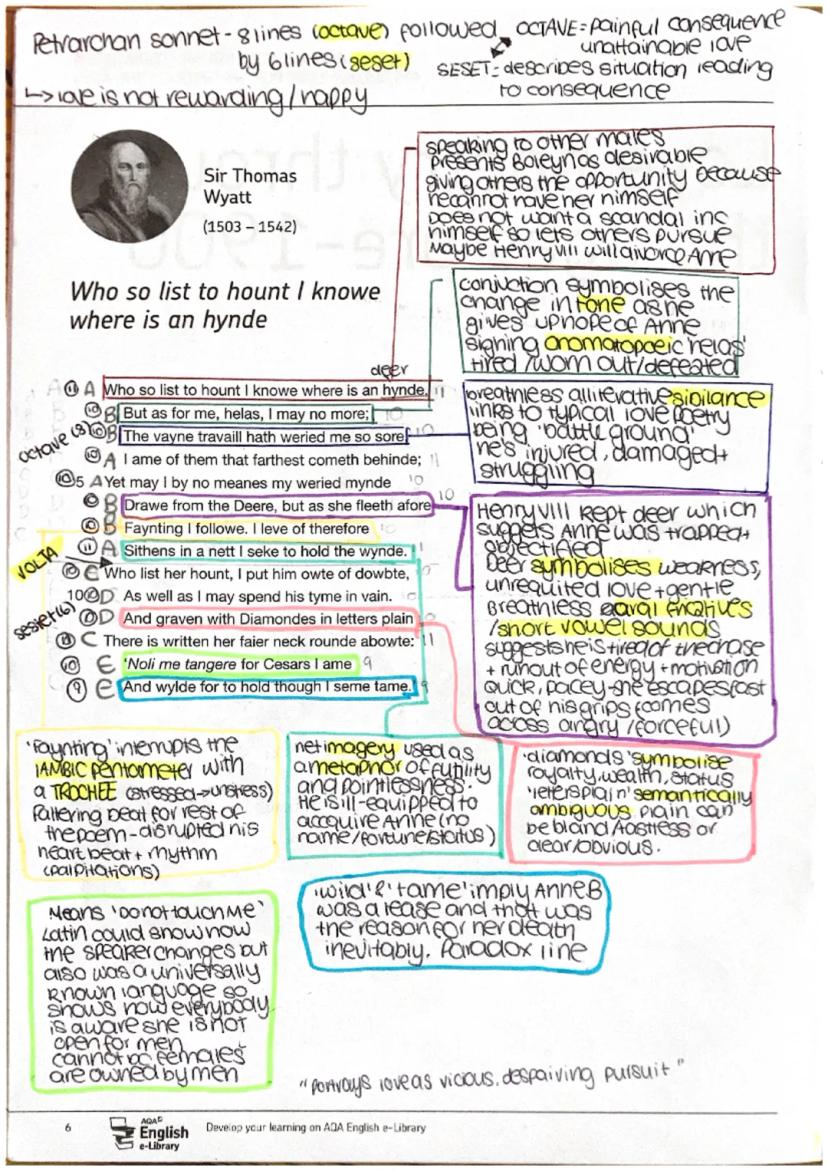 Petrarchan sonnet - 8 lines (octave) followed
by 6 lines (seset)
↳ love is not rewarding/happy
OCTAVE = painful consequence
unattainable love
SESET = describes situation leading
to consequence
Sir Thomas
Wyatt
(1503 – 1542)
speaking to other males
presents Boleyn as desirable
giving others the opportunity because
he cannot have her himself
Does not want a scandal inc
himself so lets others pursue
Maybe Henry VIII will divorce Anne
Who so list to hount I knowe
where is an hynde
conjuction symbolises the
change in tone as he
gives up hope of Anne
signing onomatopoeic 'helas'
tired/worn out/defeated
deer
A 11 A Who so list to hount I knowe where is an hynde, 11
10 B But as for me, helas, I may no more; 10
octave (8) 10 B The vayne travaill hath weried me so sore, 10
10 A I ame of them that farthest cometh behinde; 11
10 5 A Yet may I by no meanes my weried mynde 10
10 B Drawe from the Deere, but as she fleeth afore 10
10 B Faynting I followe. I leve of therefore
VOLTA 11 A Sithens in a nett I seke to hold the wynde.
10 C Who list her hount, I put him owte of dowbte,
10 10 D As well as I may spend his tyme in vain.
seset (6) 10 D And graven with Diamondes in letters plain
11 C There is written her faier neck rounde abowte: 11
10 E 'Noli me tangere for Cesars I ame 9
9 E And wylde for to hold though I seme tame.' 9
breathless alliterative sibilance
links to typical love poetry
being 'battle ground'
he's injured, damaged +
struggling
Henry VIII kept deer which
suggests Anne was trapped +
objectified
Deer symbolises weakness,
unrequited love + gentle
Breathless aural fricatives
/short vowel sounds
suggests he is tired of the chase
+ run out of energy + motivation
quick, pacey - she escapes fast
out of his grips (comes
across angry/forceful)
'Faynting' interrupts the
IAMBIC PENTAMETER with
a TROCHEE (stressed → unstress)
Faltering beat for rest of
the poem - disrupted his
heart beat + rhythm
(palpitations)
net imagery used as
a metaphor of futility
and pointlessness.
He is ill-equipped to
accquire Anne (no
name/fortune/status)
'diamonds' symbolise
royalty, wealth, status
'letters plain' semantically
ambiguous plain can
be bland/
clear/obvious.
Means 'Do not touch me'
Latin could show how
the speaker changes but
also was a universally
known language so
shows how everybody
is aware she is not
open for men
females
are owned by men
'wild' & 'tame' imply Anne B
was a tease and that was
the reason for her death
inevitably. Paradox line
"portrays love as vicious, despairing pursuit"
6
AQA
English
e-Library
Develop your learning on AQA English e-Library